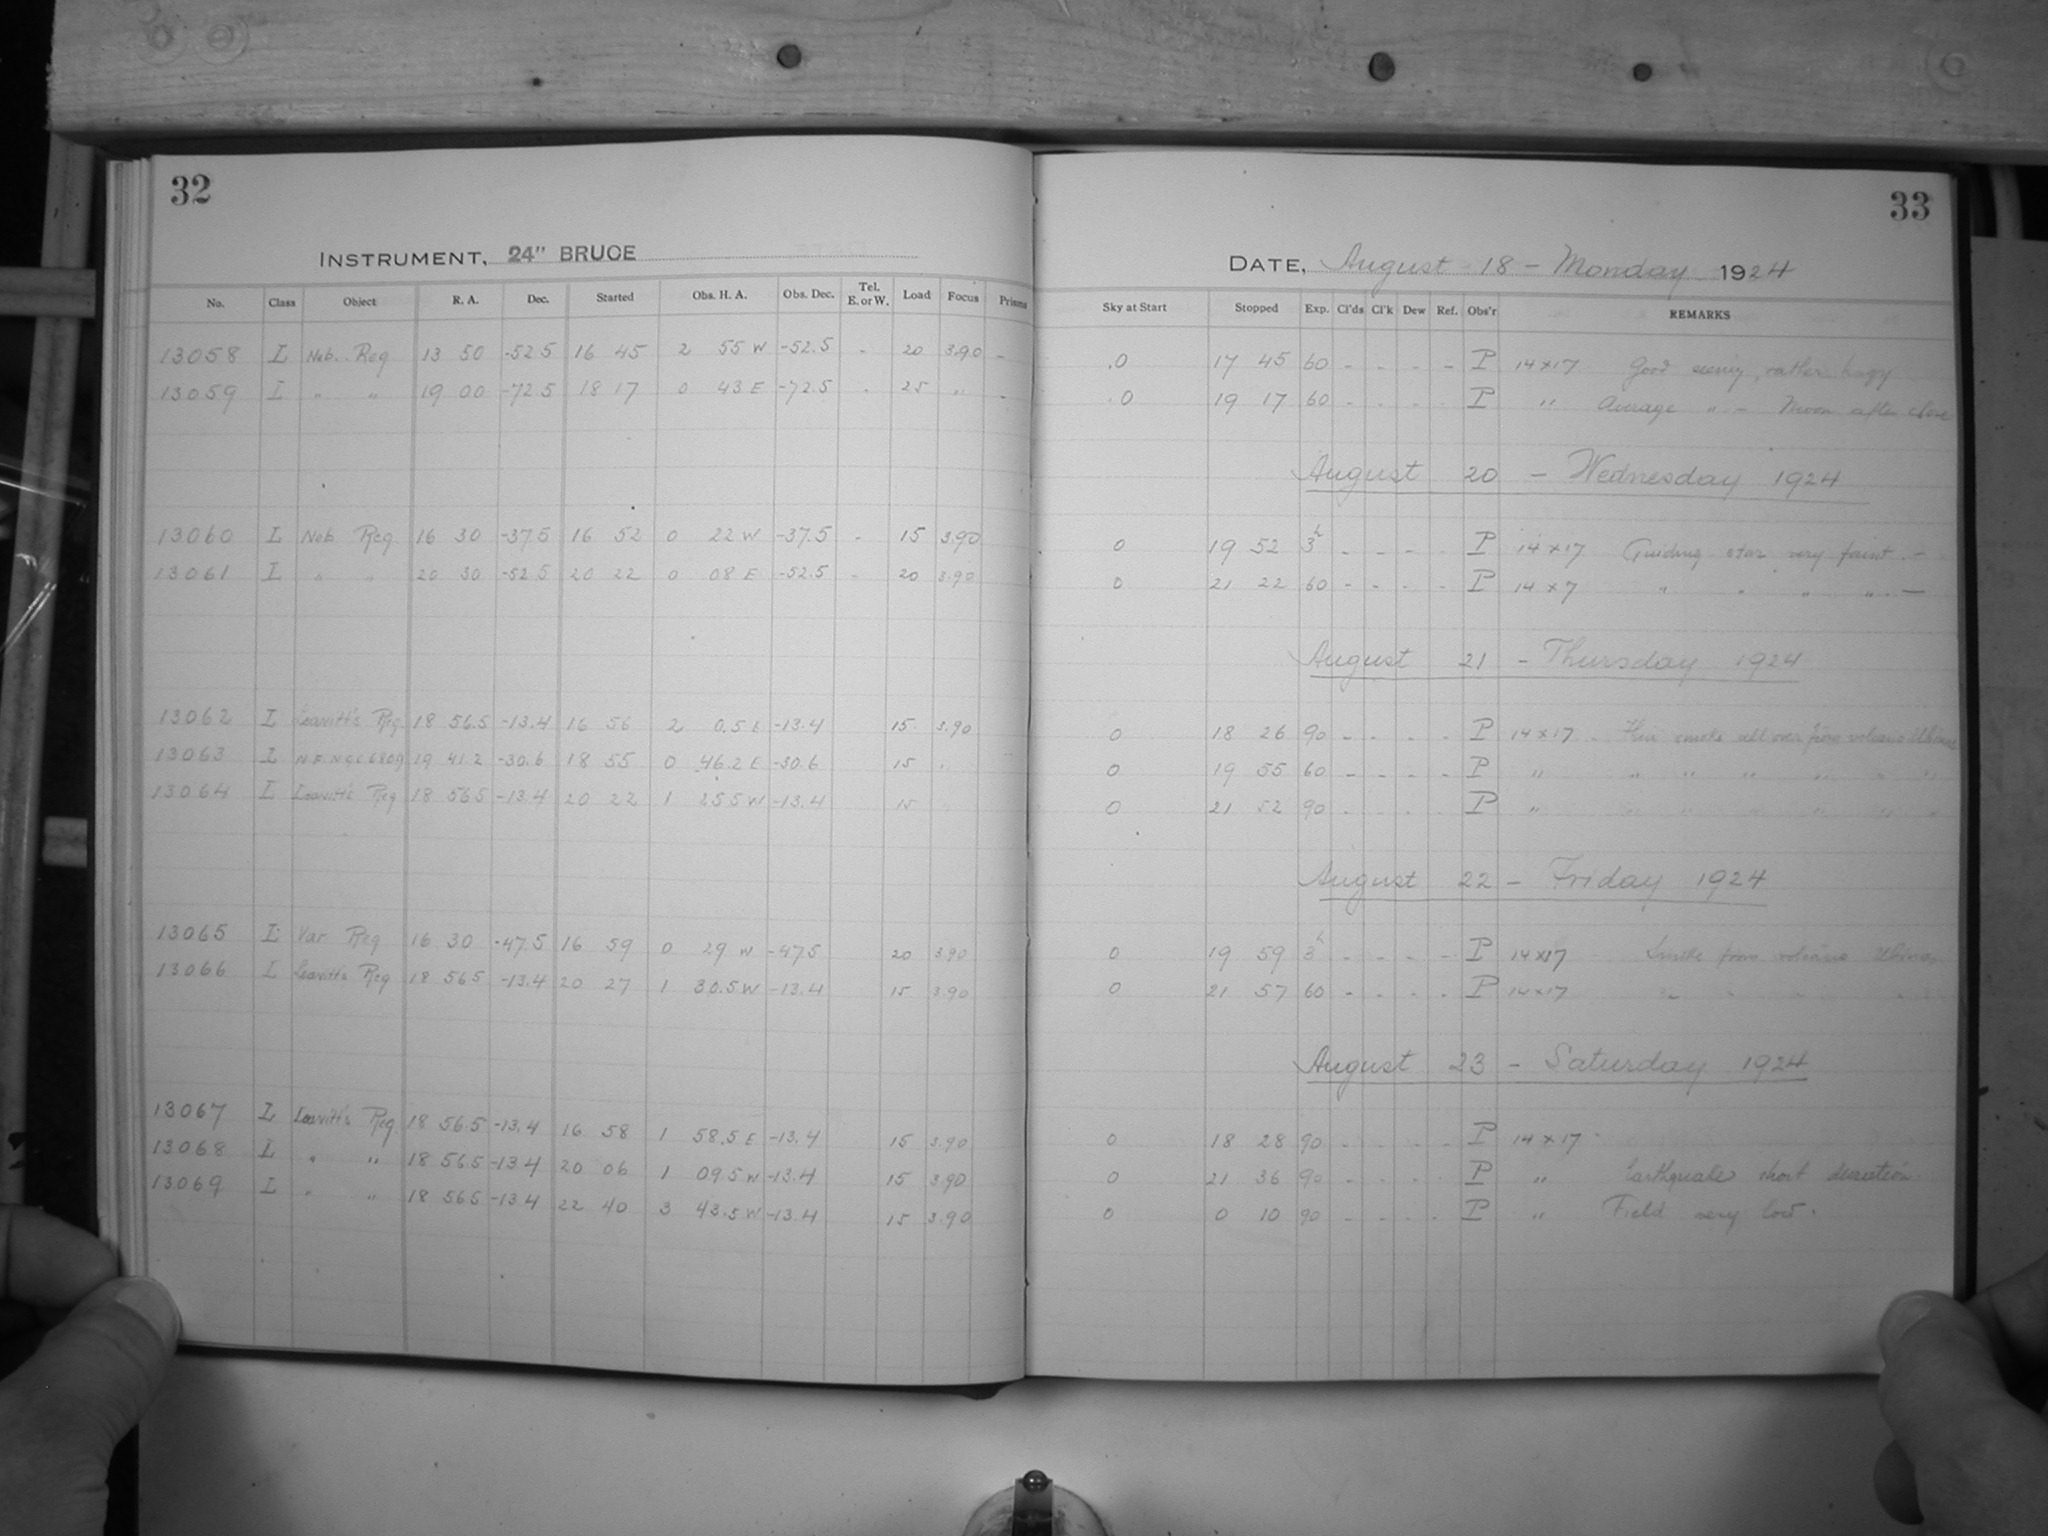 32
INSTRUMENT, 24" BRUCE
No. Class Object R. A. Dec. Started Obs. H. A. Obs. Dec. Tel. E. or W. Load Focus Prisms
13058 L Neb. Reg 13 50 -52.5 16 45 2 55 W -52.5 - 20 3.90 -
13059 L " " 19 00 -72.5 18 17 0 43 E -72.5 - 25 " -
13060 L Neb Reg. 16 30 -37.5 16 52 0 22 W -37.5 - 15 3.90
13061 L " " 20 30 -52.5 20 22 0 08 E -52.5 - 20 3.90
13062 L Leavitt's Reg. 18 56.5 -13.4 16 56 2 0.5 E -13.4 15 3.90
13063 L N.F. NGC 6809 19 41.2 -30.6 18 55 0 46.2 E -30.6 15 "
13064 L Leavitt's Reg 18 56.5 -13.4 20 22 1 25.5 W -13.4 15
13065 L Var Reg 16 30 -47.5 16 59 0 29 W -47.5 20 3.90
13066 L Leavitt's Reg 18 56.5 -13.4 20 27 1 30.5 W -13.4 15 3.90
13067 L Leavitt's Reg. 18 56.5 -13.4 16 58 1 58.5 E -13.4 15 3.90
13068 L " " 18 56.5 -13.4 20 06 1 09.5 W -13.4 15 3.90
13069 L " " 18 56.5 -13.4 22 40 3 43.5 W -13.4 15 3.90
33
DATE, August - 18 - Monday 1924
Sky at Start Stopped Exp. Cl'ds Cl'k Dew Ref. Obs'r REMARKS
.0 17 45 60 - - - - P 14x17 Good seeing, rather hazy
.0 19 17 60 - - - - P " Average " - Moon after close
August 20 - Wednesday 1924
0 19 52 3h - - - - P 14x17 Guiding star very faint. -
0 21 22 60 - - - - P 14x7 " " " " . -
August 21 - Thursday 1924
0 18 26 90 - - - - P 14x17 - Thin smoke all over from volcano Ubinas
0 19 55 60 - - - - P " " " " " " "
0 21 52 90 - - - - P " " " " " " "
August 22 - Friday 1924
0 19 59 3h - - - - P 14x17 Smoke from volcano Ubinas
0 21 57 60 - - - - P 14x17 " " " "
August 23 - Saturday 1924
0 18 28 90 - - - - P 14x17 -
0 21 36 90 - - - - P " Earthquake short duration.
0 0 10 90 - - - - P " Field very low.